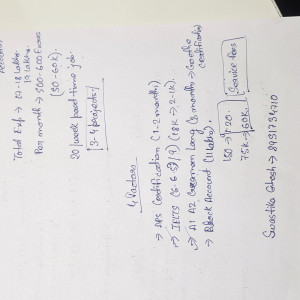 Total Exp → 17-18 Lakhs.
19 Lakhs.
Per month → 500-600 Euros
(50-60K).
20 week part time job.
[3-4 projects]
4 factors
→ APS Certification (1-2 months)
→ IELTS (6-6.5/9) (18K → 2-1K).
→ A1 A2 German Lang (3 months → Goethe
certificate)
→ Block Account (11 Lakhs).
150 → 120.
75K → 60K.
Service fees
Swastika Ghosh → 8931734710